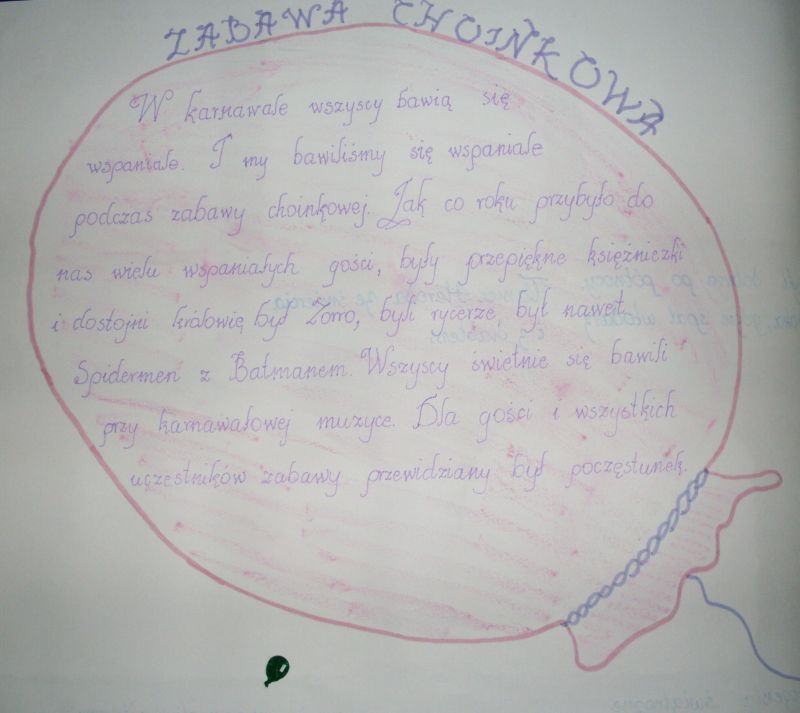 ZABAWA CHOINKOWA
W karnawale wszyscy bawią się
wspaniale. I my bawiliśmy się wspaniale
podczas zabawy choinkowej. Jak co roku przybyło do
nas wielu wspaniałych gości, były przepiękne księżniczki
i dostojni królowie był Zorro, byli rycerze, był nawet
Spidermen z Batmanem. Wszyscy świetnie się bawili
przy karnawałowej muzyce. Dla gości i wszystkich
uczestników zabawy przewidziany był poczęstunek.